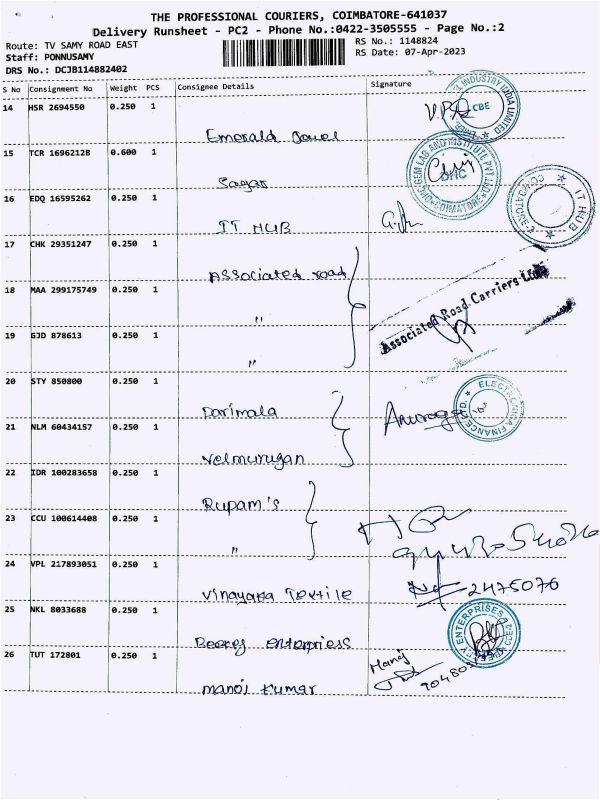 THE PROFESSIONAL COURIERS, COIMBATORE-641037
Delivery Runsheet - PC2 - Phone No.:0422-3505555 - Page No.:2
Route: TV SAMY ROAD EAST
RS No.: 1148824
Staff: PONNUSAMY
RS Date: 07-Apr-2023
DRS No.: DCJB114882402
S No Consignment No Weight PCS Consignee Details Signature
14 HSR 2694550 0.250 1
Emerald Jewel
15 TCR 16962128 0.600 1
Sagar
16 EDQ 16595262 0.250 1
IT HUB
17 CHK 29351247 0.250 1
Associated road
18 MAA 299175749 0.250 1
"
19 GJD 878613 0.250 1
"
20 STY 850800 0.250 1
Darimala
21 NLM 60434157 0.250 1
Velmurugan
22 IDR 100283658 0.250 1
Rupam's
23 CCU 100614408 0.250 1
"
24 VPL 217893051 0.250 1
Vinayaka Textile
2475076
25 NKL 8033688 0.250 1
26 TUT 172801 0.250 1
Manoj
manoj kumar
CBE
GEM LAB AND INSTITUTE PVT LTD
COIMBATORE
IT HUB
Associated Road Carriers Ltd
ENTERPRISES